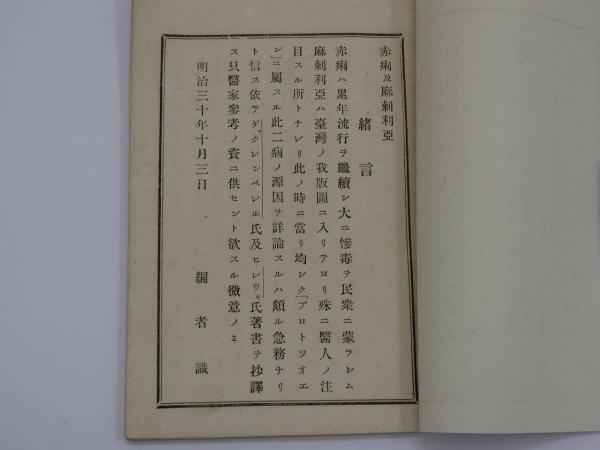 赤痢及麻剌利亞
緒言
赤痢ハ累年流行ヲ繼續シ大ニ慘毒ヲ民衆ニ蒙ラシム
麻剌利亞ハ臺灣ノ我版圖ニ入リテヨリ殊ニ醫人ノ注
目スル所トナレリ此ノ時ニ當リ均シク「プロトツオエ
ン」ニ屬スル此二病ノ源因ヲ詳論スルハ頗ル急務ナリ
ト信ス依テゲクレンペレル氏及ヒレウィ氏著書ヲ抄譯
ス只醫家參考ノ資ニ供セント欲スル微意ノミ
明治三十年十月三日
編者識